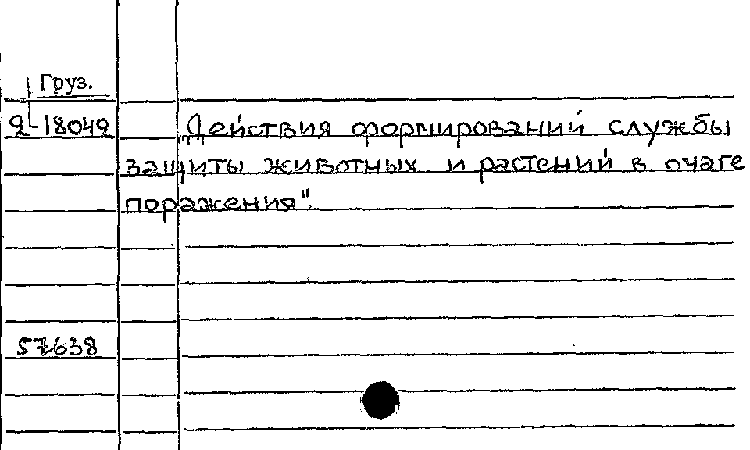 Груз.
2-18049 „Действия формирований службы
защиты животных и растений в очаге
поражения".
57638